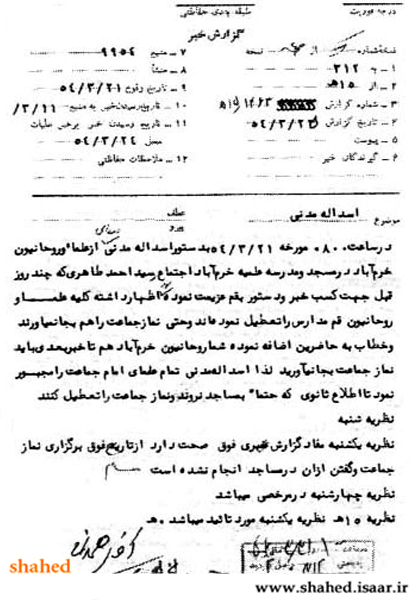 درجه فوریت
طبقه بندی حفاظتی
گزارش خبر
نسخه شماره از نسخه
۱ - به ۳۱۲
۲ - از ۱۵هـ
۳ - شماره گزارش
۴ - تاریخ گزارش
۵ - پیوست
۶ - گیرندگان خبر
۷ - منبع ۹۹۵۴
۸ - منشأ
۹ - تاریخ وقوع ۵۴/۳/۲۱
۱۰ - تاریخ رسیدن خبر به منبع
۱۱ - تاریخ رسیدن خبر برهبر عملیات
محل ۵۴/۳/۲۴
۱۲ - ملاحظات حفاظتی
موضوع اسداله مدنی
عطف
پیرو
در ساعت ۰۸۰۰ مورخه ۵۴/۳/۲۱ بدستور اسداله مدنی از علماء و روحانیون
خرم‌آباد در مسجد و مدرسه علمیه خرم‌آباد اجتماع سید احمد طاهری که چند روز
قبل جهت کسب خبر و دستور بقم عزیمت نموده اظهار داشته کلیه علما و
روحانیون قم مدارس را تعطیل نموده‌اند وحتی نماز جماعت را هم بجا نمیاورند
وخطاب به حاضرین اضافه نموده شما روحانیون خرم‌آباد هم تا خبر بعدی باید
نماز جماعت بجا نمیآورید لذا اسداله مدنی تمام علمای امام جماعت را مجبور
نمود تا اطلاع ثانوی که حتماً بمساجد نروند و نماز جماعت را تعطیل کنند
نظریه شنبه
نظریه یکشنبه مفاد گزارش خبری فوق صحت دارد از تاریخ فوق برگزاری نماز
جماعت وگفتن اذان در مساجد انجام نشده است
نظریه چهارشنبه در مرخصی میباشد
نظریه ۱۵هـ نظریه یکشنبه مورد تائید میباشد هـ
shahed
www.shahed.isaar.ir